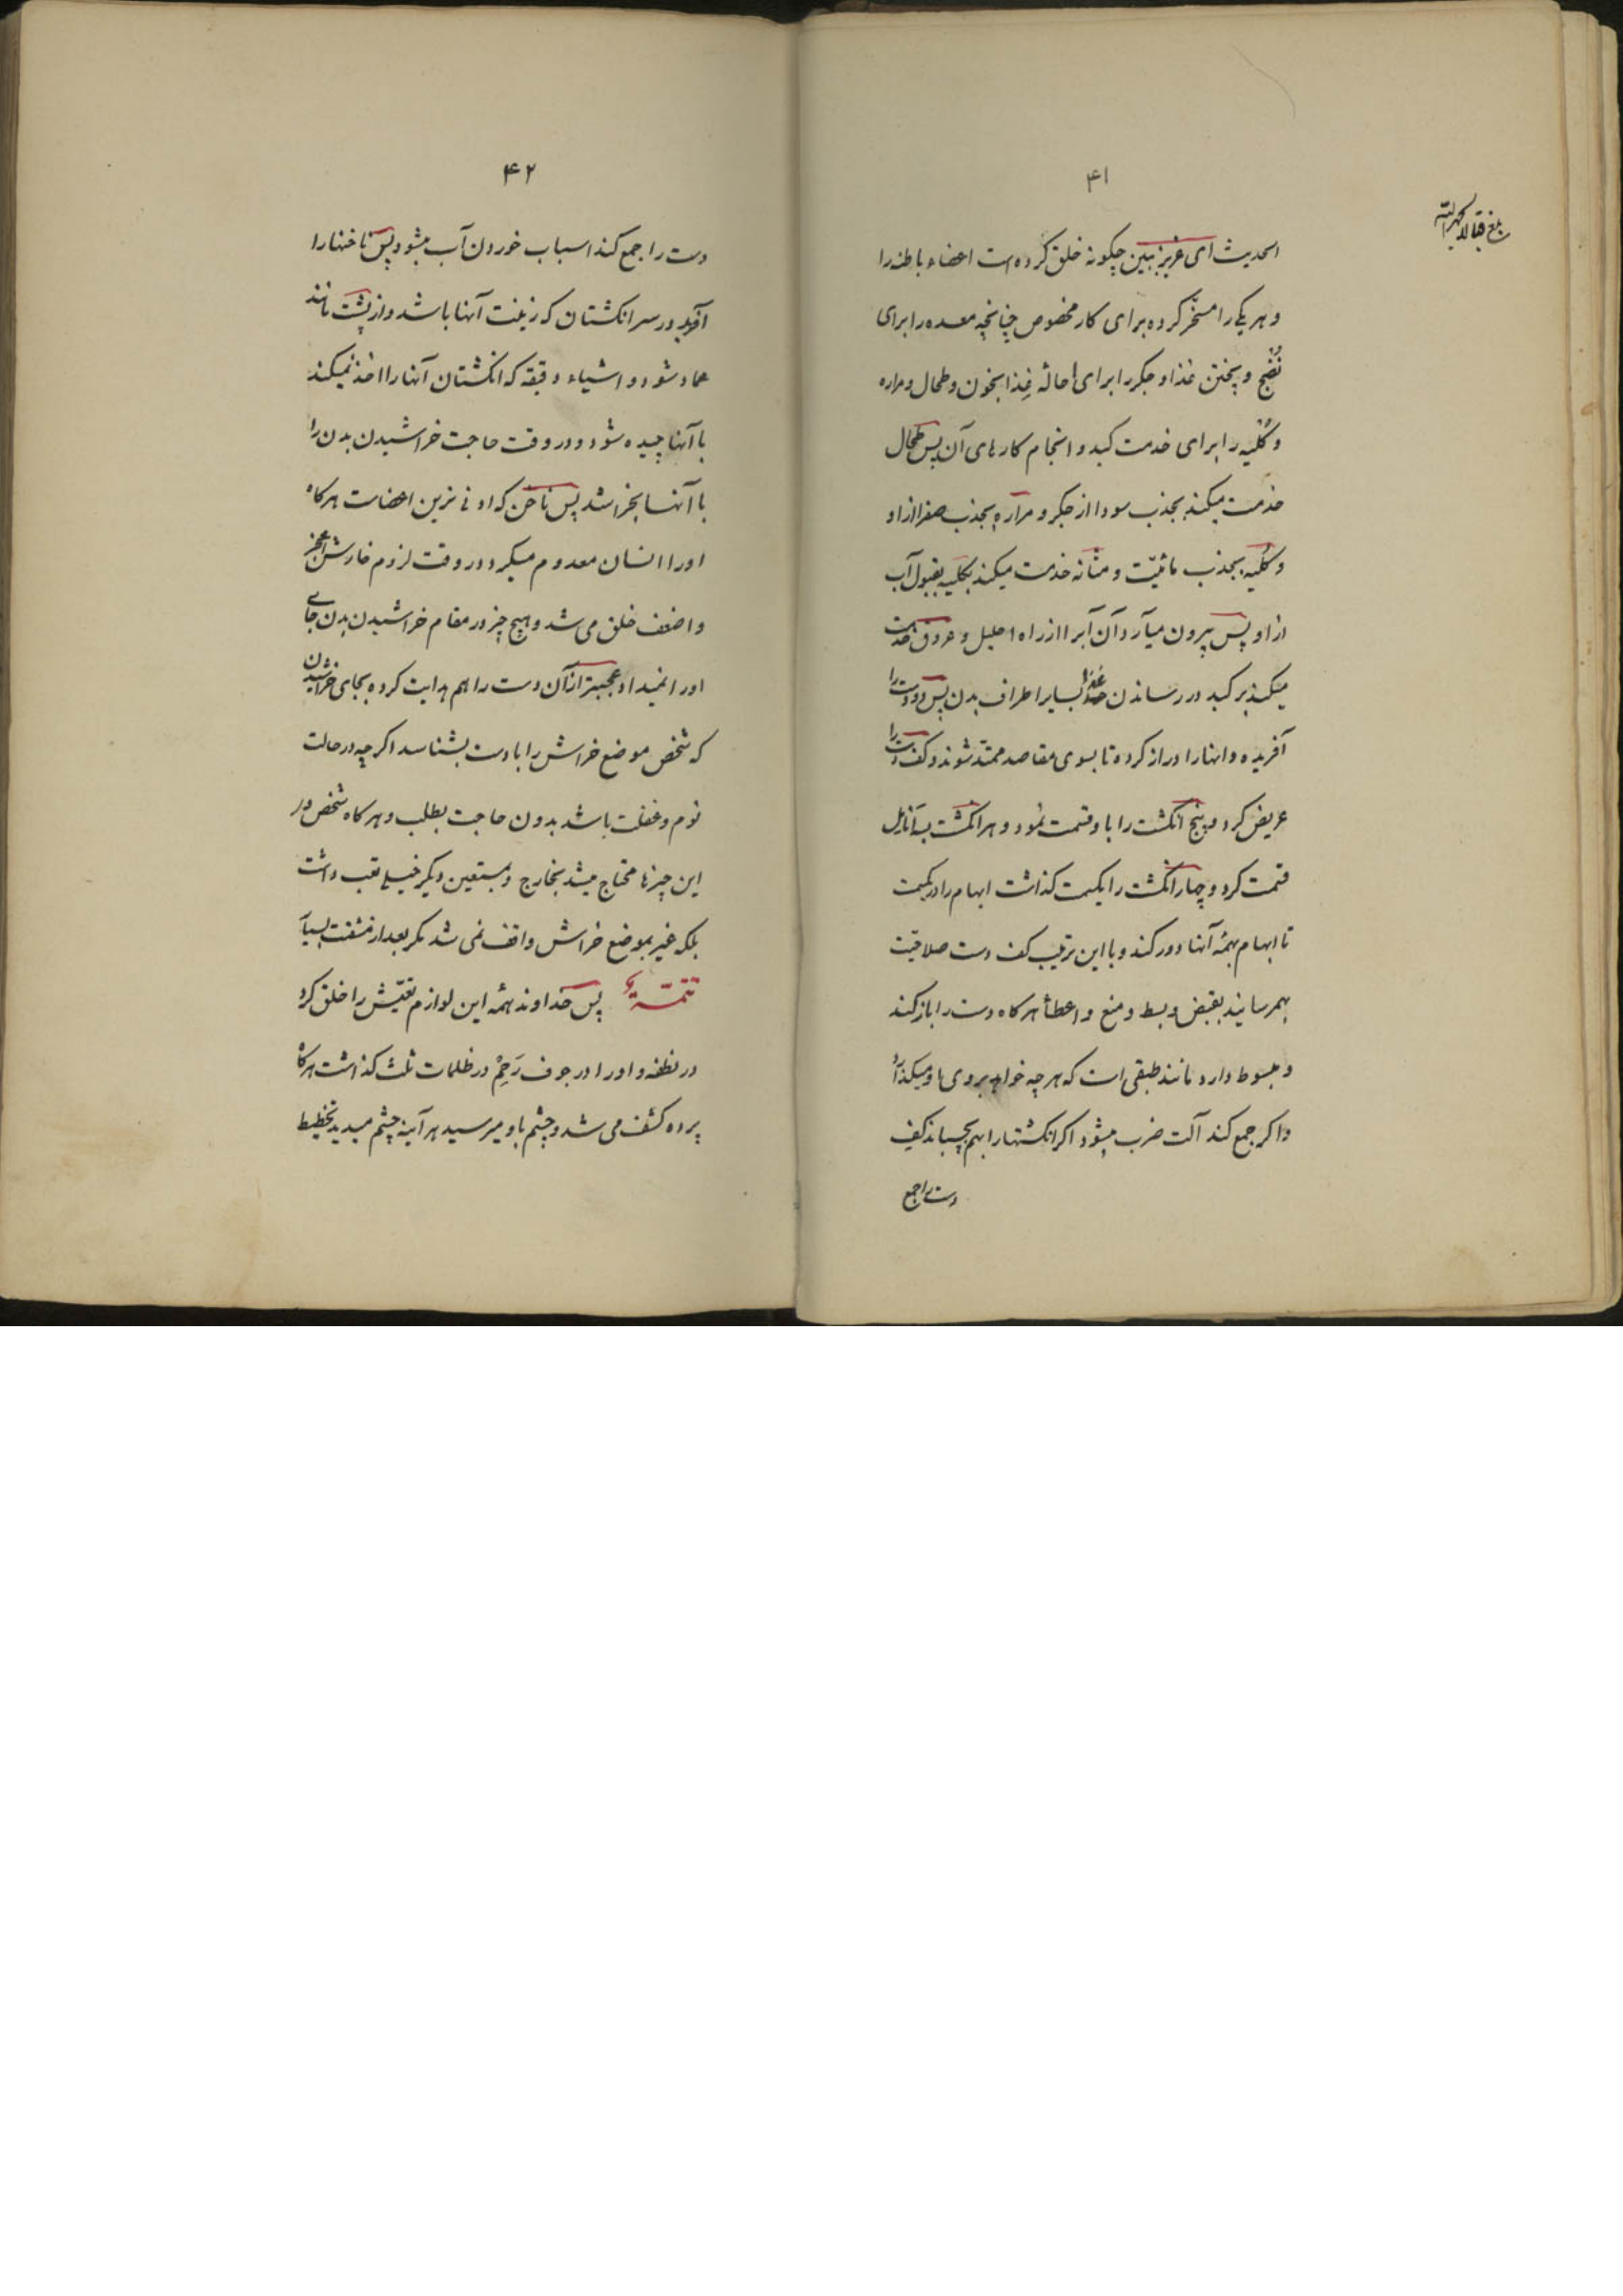 ۴۱
الحدیث ای عزیز ببین چکونه خلق کرده است اعضاء باطنه را
و هر یکی را مسخّر کرده برای کار مخصوص چنانچه معده را برای
نُضج و پختن غذا و جکر را برای احالهٔ غذا بخون و طحال و مراره
و کُلیه را برای خدمت کبد و انجام کارهای آن پس طحال
خدمت میکند بجذب سودا از جکر و مراره بجذب صفرا از او
و کُلیه بجذب مائیّت و مثانه خدمت میکند بکلیه بقبول آب
از او پس بیرون میآرد آن آبرا از راه احلیل و عروق خدمت
میکند بر کبد در رساندن غذا بسایر اطراف بدن پس دو دست را
آفریده و انها را دراز کرده تا بسوی مقاصد ممتدّ شوند و کف دست را
عریض کرد و پنج انکشت را باو قسمت نمود و هر انکشت بسه انامل
قسمت کرد و چهار انکشت را یکسمت کذاشت ابهام را در یکسمت
تا ابهام بهمهٔ آنها دور کند و با این ترتیب کف دست صلاحیّت
بهمرسانید بقبض و بسط و منع و اعطأ هر کاه دست را باز کند
و مبسوط دارد مانند طبقی است که هر چه خواهد بروی او میکذارد
و اکر جمع کند آلت ضرب میشود اکر انکشتها را بهم بچسباند کیف
دست را جمع
۴۲
دست را جمع کند اسباب خوردن آب میشود پس ناخنها را
آفرید در سر انکشتان که زینت آنها باشد و از پشت مانند
عماد شود و اشیاء دقیقه که انکشتان آنها را اخذ نمیکند
با آنها چیده شود و در وقت حاجت خراشیدن بدن را
با آنها بخراشد پس ناخن که ادنی ترین اعضاست هر کاه
او را انسان معدوم میکرد در وقت لزوم خارش اعجز
و اضعف خلق می شد و هیچ چیز در مقام خراشیدن بدن جای
او را نمیداد و عجبتر از آن دست را هم هدایت کرده بجای خراشیدن
که شخص موضع خراش را با دست بشناسد اکر چه در حالت
نوم و غفلت باشد بدون حاجت بطلب و هر کاه شخص در
این چیزها محتاج میشد بخارج و بمعین دیکر خیلی تعب داشت
بلکه غیر بموضع خراش واقف نمی شد مکر بعد از مشقت بسیار
تتمّـة پس خداوند همهٔ این لوازم تعیّش را خلق کرد
در نطفه و او را در جوف رَحِمْ در ظلمات ثلث کذاشت هر کاه
پرده کشف می شد و چشم باو میرسید هر آینه چشم میدید تخطیط